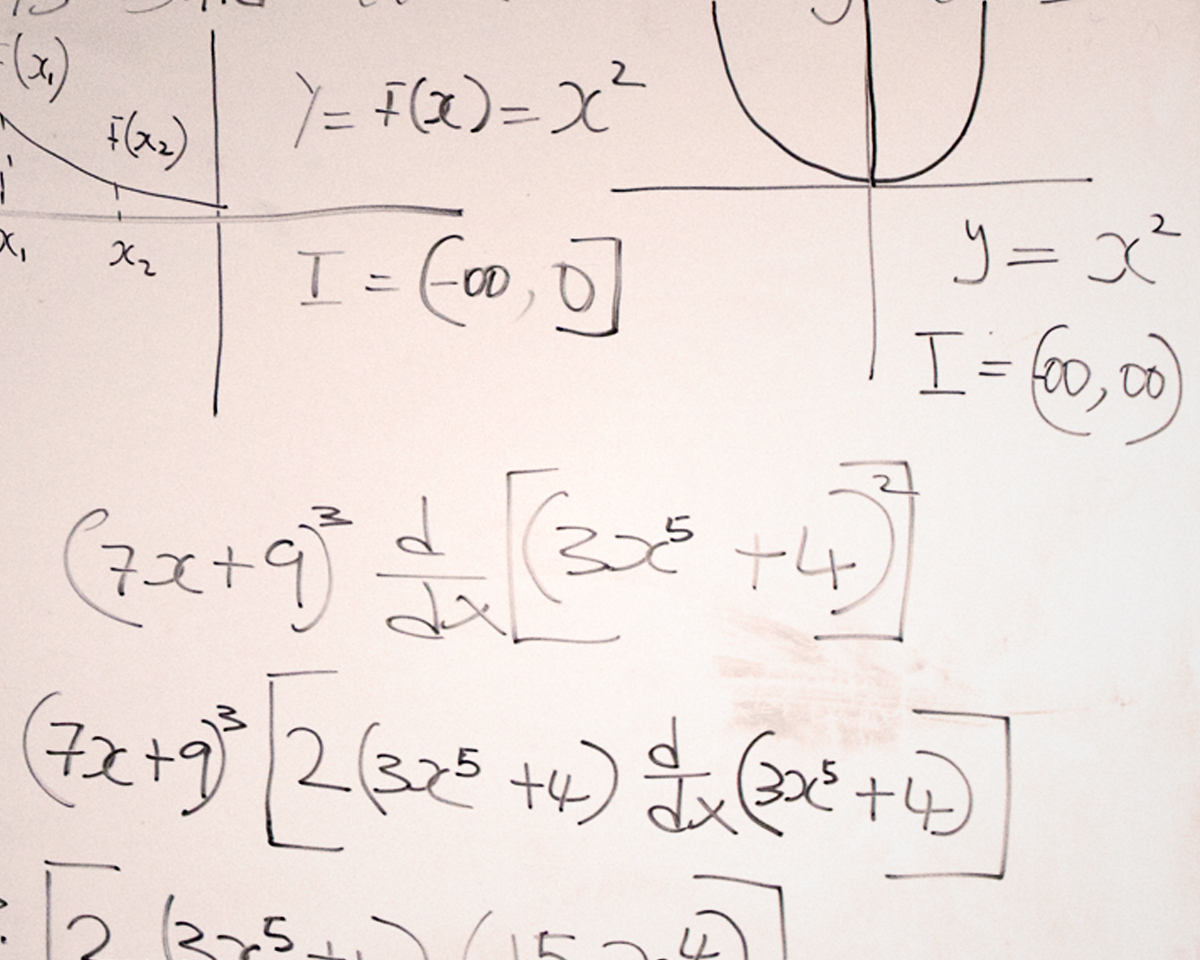 (x₁)
y = f(x) = x²
f(x₂)
x₁ x₂
I = (-∞, 0]
y = x²
I = (-∞, ∞)
(7x+9)³ d/dx [(3x⁵ +4)²]
(7x+9)³ [2(3x⁵ +4) d/dx (3x⁵ +4)]
[2 (3x⁵+ ) (15x⁴)]